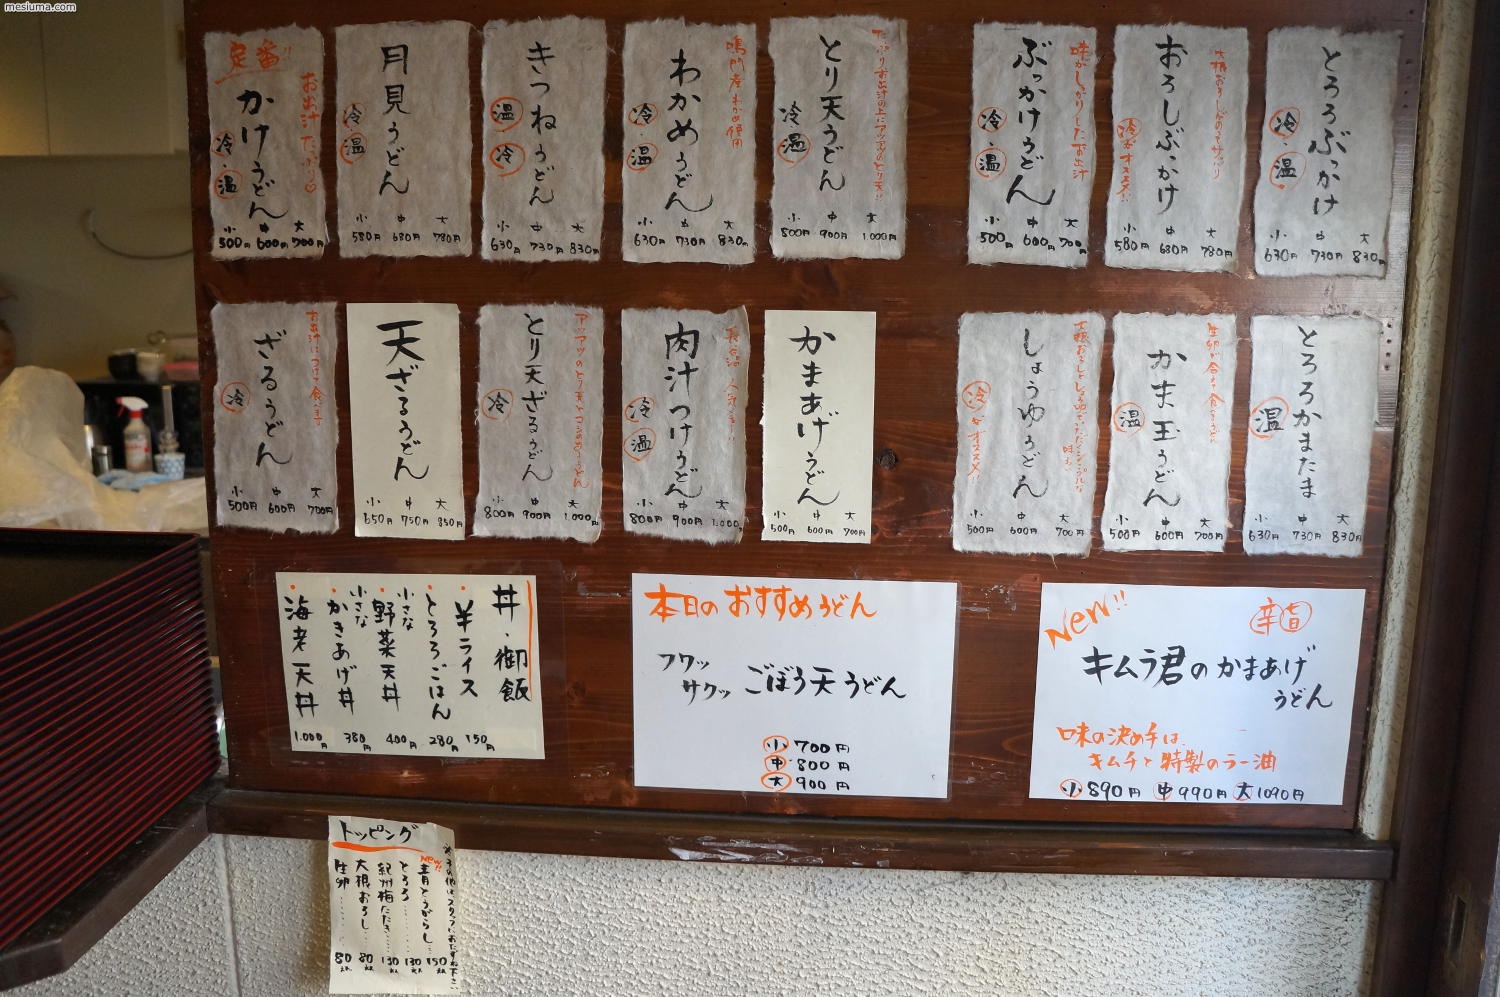 mesiuma.com
定番!!
お出汁たっぷり♡
かけうどん
冷・温
小 中 大
500円 600円 700円
月見うどん
冷 温
小 中 大
580円 680円 780円
きつねうどん
温 冷
小 中 大
630円 730円 830円
鳴門産わかめ使用
わかめうどん
冷・温
小 中 大
630円 730円 830円
たっぷりお出汁の上にアツアツのとり天!!
とり天うどん
冷 温
小 中 大
800円 900円 1,000円
味がしっかりしたお出汁
ぶっかけうどん
冷・温
小 中 大
500円 600円 700円
大根おろしでのどサッパリ
おろしぶっかけ
冷がオススメ!!
小 中 大
580円 680円 780円
とろろぶっかけ
冷・温
小 中 大
630円 730円 830円
お出汁につけて食べます
ざるうどん
冷
小 中 大
500円 600円 700円
天ざるうどん
小 中 大
650円 750円 850円
アツアツのとり天とコシのあるうどん
とり天ざるうどん
冷
小 中 大
800円 900円 1,000円
人気
肉汁つけうどん
冷 温
小 中 大
800円 900円 1,000円
かまあげうどん
小 中 大
500円 600円 700円
大根おろしとしょうゆでいただくシンプルな味わい
しょうゆうどん
冷がオススメ!
小 中 大
500円 600円 700円
かま玉うどん
温
小 中 大
500円 600円 700円
とろろかまたま
温
小 中 大
630円 730円 830円
丼・御飯
・半ライス 150円
・とろろごはん 280円
・小さな野菜天丼 400円
・小さなかきあげ丼 380円
・海老天丼 1,000円
本日のおすすめうどん
フワッ
サクッ ごぼう天うどん
小 700円
中 800円
大 900円
New!! 辛旨
キムラ君のかまあげ
うどん
味の決め手は
キムチと特製のラー油
小 890円 中 990円 大 1090円
トッピング
※その他はスタッフにおたずね下さい
New!! 青とうがらし… 150
とろろ…… 130
紀州梅たたき… 130
大根おろし… 80
生卵…… 80